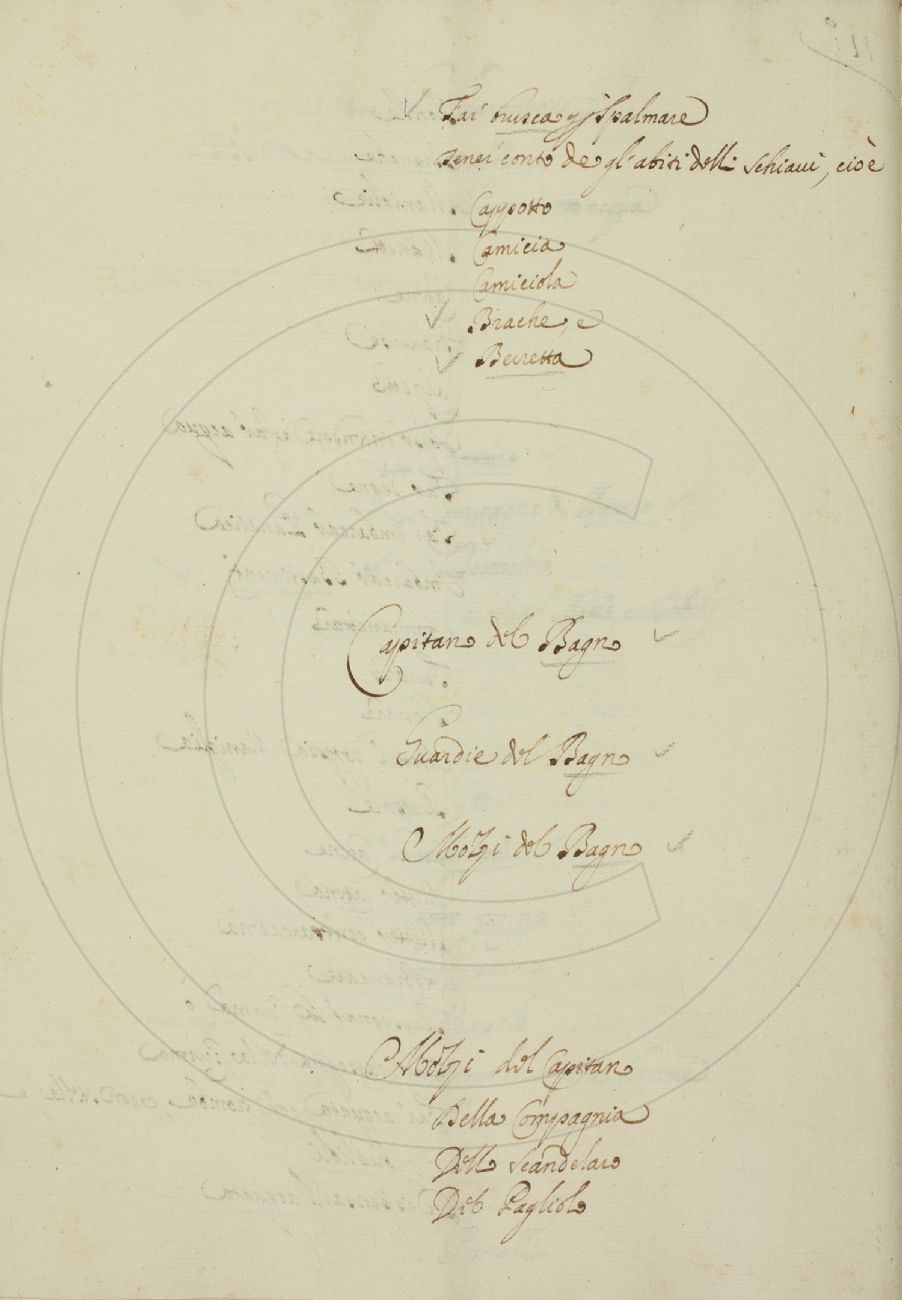 Far brusca p Spalmare
Tener conto de gl'abiti delli Schiavi, cioè
Cappotto
Camicia
Camiciola
Brache, e
Beretta
Capitan del Bagno
Guardie del Bagno
Mozzi del Bagno
Mozzi del Capitan
Della Compagnia
Dello Scandelaro
Del Pagliolo